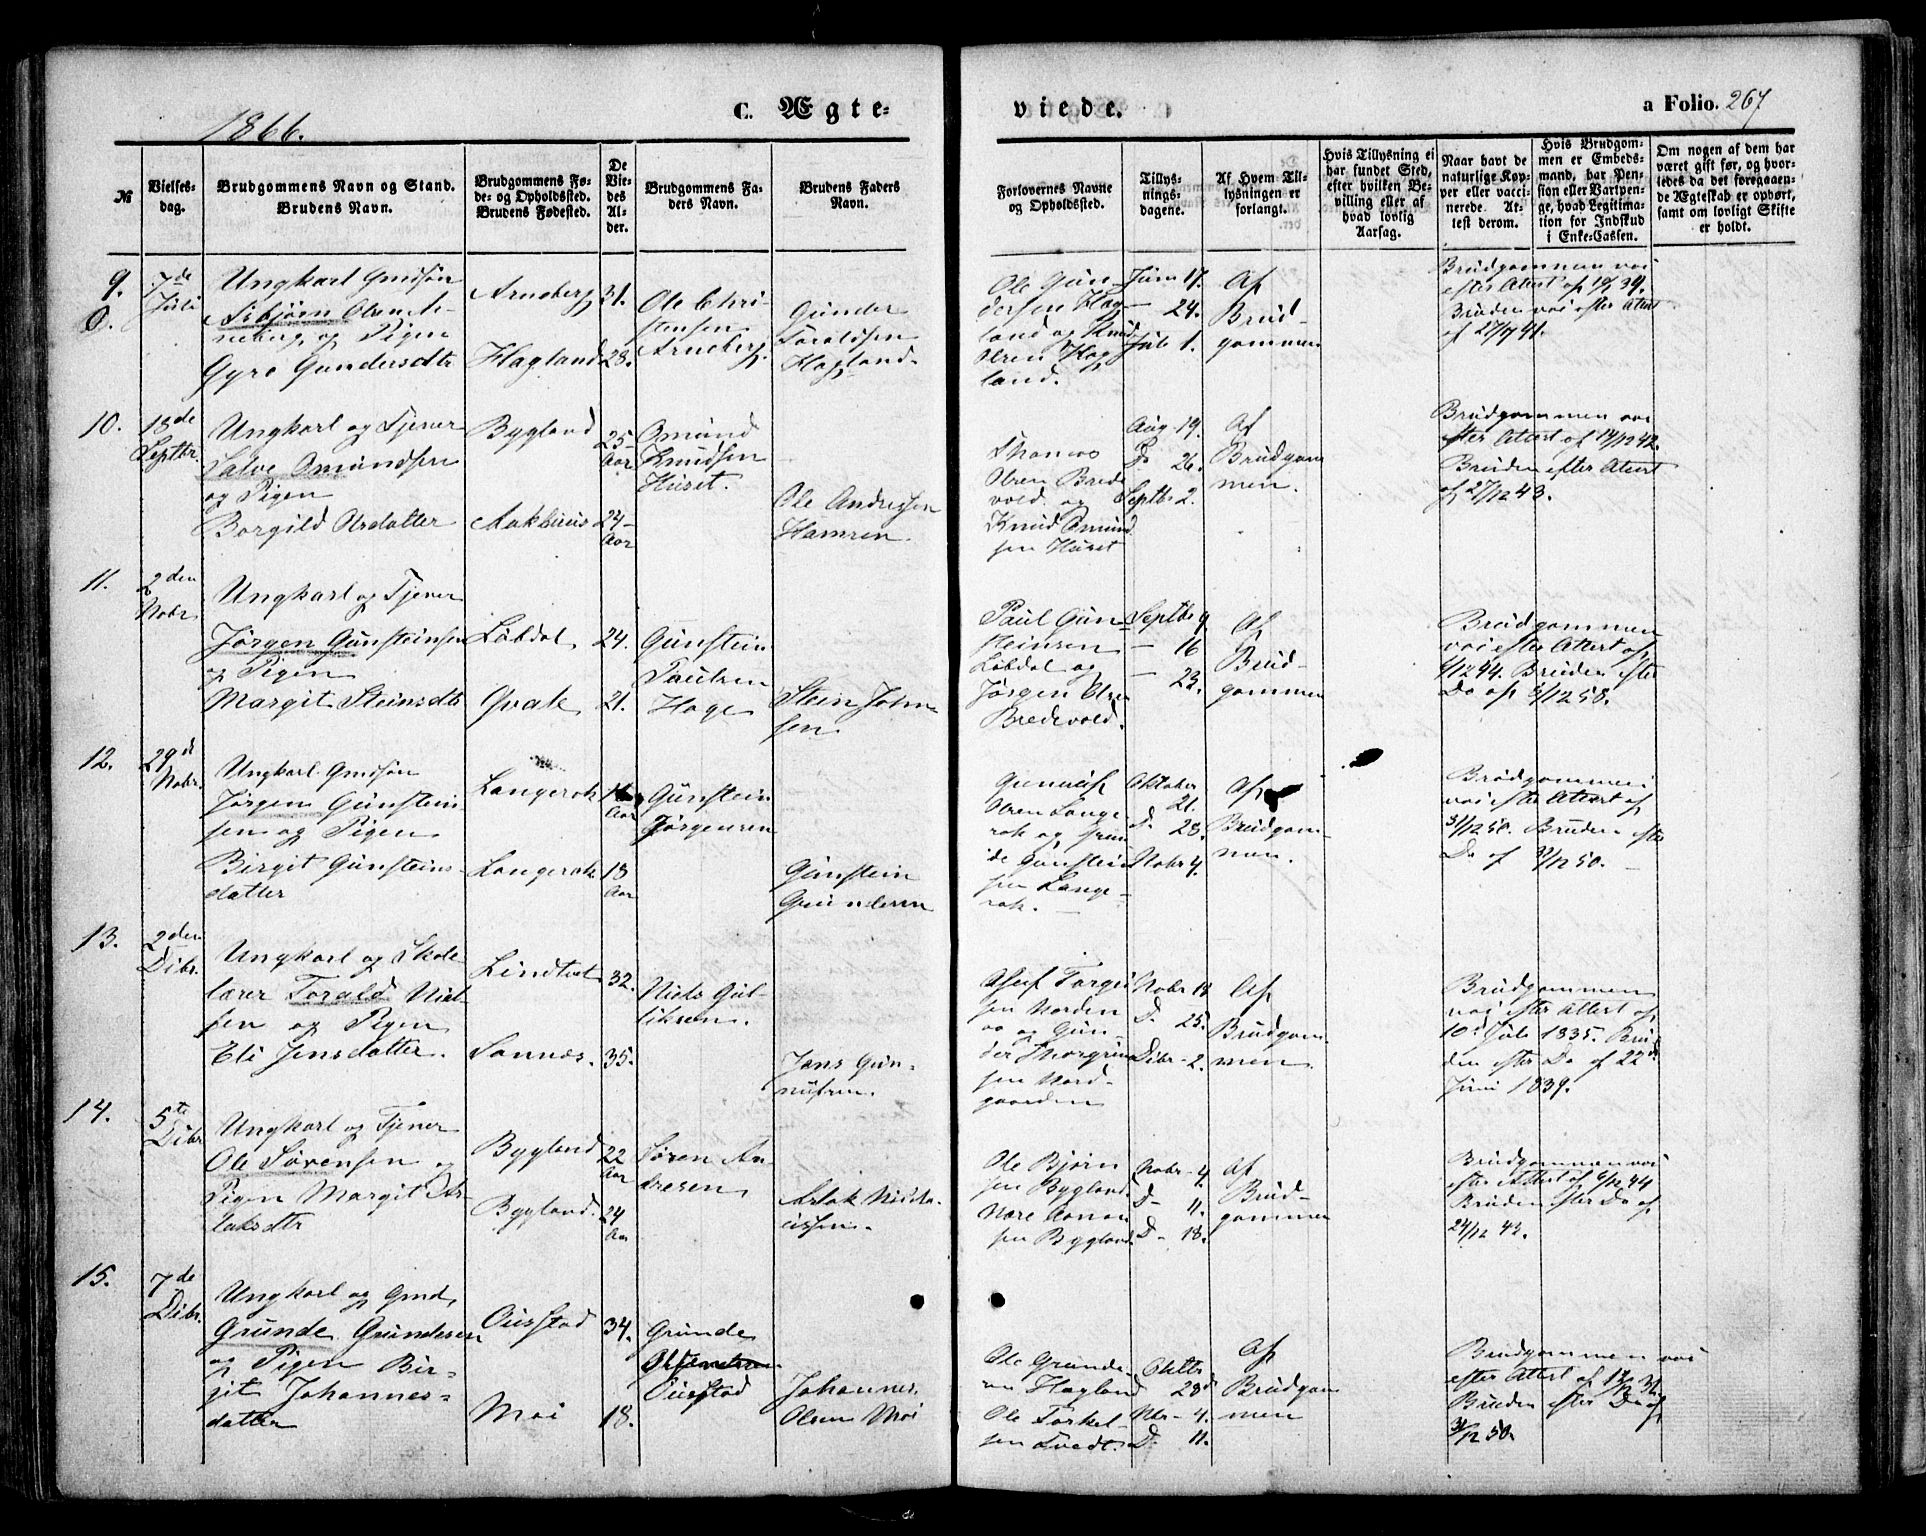 1866.
C. Ægte-
viede.
a Folio. 267
№
Vielses-
dag.
Brudgommens Navn og Stand.
Brudens Navn.
Brudgommens Fø-
de- og Opholdssted.
Brudens Fødested.
De
Vie-
des
Al-
der.
Brudgommens Fa-
ders Navn.
Brudens Faders
Navn.
Forlovernes Navne
og Opholdssted.
Tillys-
nings-
dagene.
Af Hvem Til-
lysningen er
forlangt.
Hvis Tillysning ei
har fundet Sted,
efter hvilken Be-
villing eller af
hvad lovlig
Aarsag.
Naar havt de
naturlige Kop-
per eller vacci-
nerede. At-
test derom.
Hvis Brudgom-
men er Embeds-
mand, har Pen-
sion eller Vartpen-
ge, hvad Legitima-
tion for Indskud
i Enke-Cassen.
Om nogen af dem har
været gift før, og hvor-
ledes da det foregaaen-
de Ægteskab er ophørt,
samt om lovligt Skifte
er holdt.
9.
7de
Juli
Ungkarl Gmdsøn
Asbjørn Olsen Ar-
neberg og Pigen
Gyro Gundersdtr
Arneberg
Hagland
31.
28.
Ole Chri-
stensen
Arneberg.
Gunder
Toraldsen
Hagland.
Ole Gun-
dersen Hag-
land og Knud
Olsen Hag-
land.
Juni 17.
— 24.
Juli 1.
Af
Brud-
gommen
Brudgommen vac
efter Attest af
Bruden vac efter Attest
af 27/7 41.
10.
18de
Septbr.
Ungkarl og Tjener
Salve Omundsen
og Pigen
Borgild Olsdatter
Bygland
Aakhuus
25
Aar
24
Aar
Omund
Knudsen
Huset.
Ole Andersen
Hamren.
Olsen Brede
vold og
Knud Omund
sen Huset
Aug 19.
Do 26.
Septbr 2.
Af
Brudgom
men.
Brudgommen vac
efter Attest af 14/12 42.
Bruden efter Attest
af 27/12 43.
11.
2den
Nobr
Ungkarl og Tjener
Jørgen Gunsteinsen
og Pigen
Margit Steinsdtr
Løbdal
Qvak
24.
21.
Gunstein
Paulsen
Hage
Stein John-
sen
Paul Gun-
steinsen
Løbdal og
Jørgen Olsen
Bredevold.
Septbr 9
— 16
— 23.
Af
Brud-
gommen
Brudgommen
vac efter Attest af
6/12 44. Bruden efter
Do af 5/12 58.
12.
29d
Nobr.
Ungkarl Gmdsøn
Jørgen Gunstein-
sen og Pigen
Birgit Gunsteins-
datter
Langerak
Langerak
Aar
18
Aar
Gunstein
Jørgensen
Gunstein
Gundersen
Olsen Lange
rak og
Gunstein
sen Lange-
rak.
Oktober
21.
D. 28.
Nobr 4.
Af
Brudgom-
men.
Brudgommen
vac efter Attest af
31/12 50. Bruden efter
Do af 31/12 50.
13.
2den
Dibr.
Ungkarl og Skole
lærer Torald Niel-
sen og Pigen
Eli Jensdatter.
Lindtvet
Sannes.
32.
35.
Niels Gul-
liksen.
Jens Gun-
nufsen.
Torgri
sen Norden
aa og Gun-
der Thorgrim
sen Nord-
gaarden
Nobr 18
D. 25.
Dibr 2.
Af
Brudgom-
men.
Brudgommen
vac efter Attest af
10d Jule 1835. Bru-
den efter Do af 22d
Juni 1839.
14.
5te
Dibr
Ungkarl og Tjener
Ole Sørensen og
Pigen Margit As-
laksdtr
Bygland
Bygland.
22
Aar
24
Aar
Søren An-
dresen
Aslak Nicola-
issen.
Ole Bjørn
sen Bygland
Tore Aanon
sen Bygland.
Nobr - 4.
D- 11.
D- 18.
Af
Brud-
gommen
Brudgommen vac
efter Attest af 6/12 44
Bruden efter Do af
24/12 42.
15.
7de
Dibr.
Ungkarl og Gmd.
Grunde Grundesen
og Pigen Bir-
git Johannes-
datter
Ousstad
Moi
34.
18.
Grunde
Ousstad
Johannes
Olsen Moi
Ole Grunde
sen Hagland
Ole Torkel-
sen Tvedt.
Oktbr
28d
Nbr - 4.
D. 11.
Af
Brudgom
men
Brudgommen vac
efter Attest af
Bruden efter Do af
31/12 50.